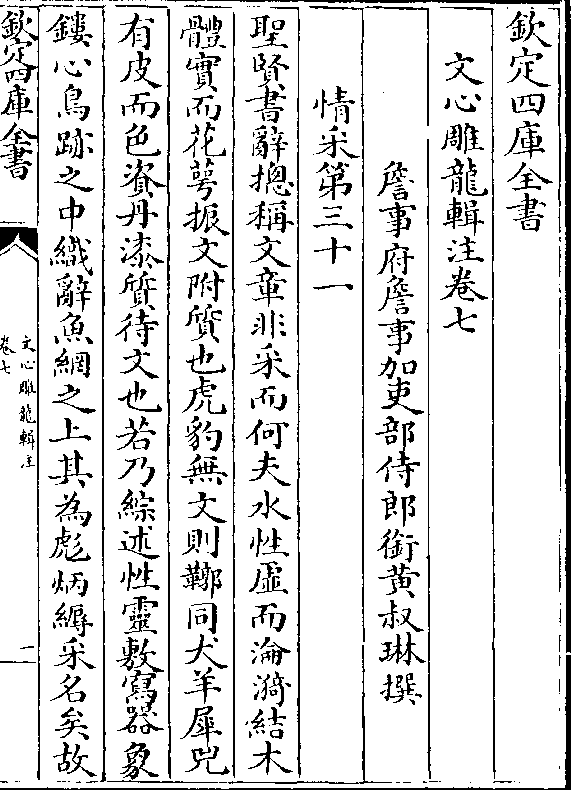 欽定四庫全書
文心雕龍輯注卷七
詹事府詹事加吏部侍郎銜黃叔琳撰
情采第三十一
聖賢書辭摠稱文章非采而何夫水性虛而淪漪結木
體實而花萼振文附質也虎豹無文則鞹同犬羊犀兕
有皮而色資丹漆質待文也若乃綜述性靈敷寫器象
鏤心鳥跡之中織辭魚網之上其為彪炳縟采名矣故
欽定四庫全書
文心雕龍輯注
卷七
一